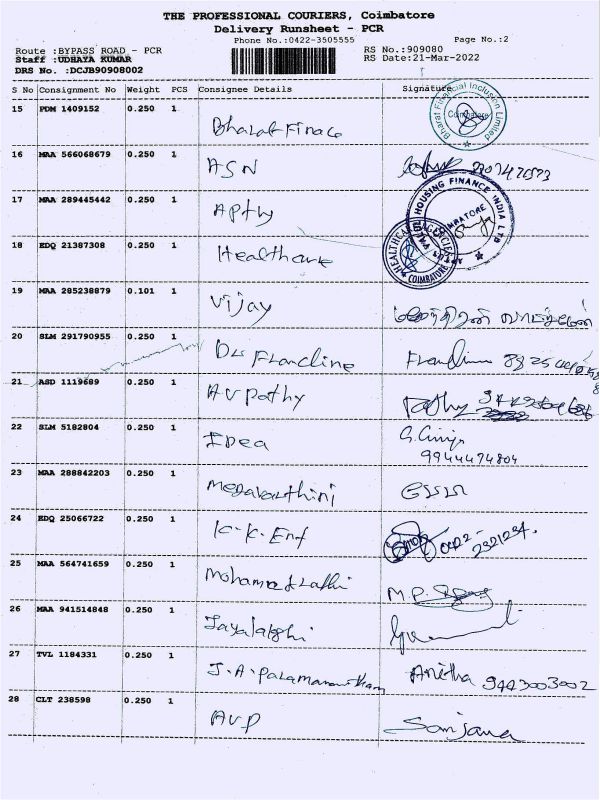 THE PROFESSIONAL COURIERS, Coimbatore
Delivery Runsheet - PCR
Phone No.:0422-3505555
Page No.:2
Route :BYPASS ROAD - PCR
RS No.:909080
Staff :UDHAYA KUMAR
RS Date:21-Mar-2022
DRS No. :DCJB90908002
S No Consignment No Weight PCS Consignee Details Signature
15 PDM 1409152 0.250 1
Bharat Finace
Bharat Financial Inclusion Limited
Coimbatore
16 MAA 566068679 0.250 1
ASN
17 MAA 289445442 0.250 1
Apthy
HOUSING FINANCE INDIA LTD
18 EDQ 21387308 0.250 1
Healthcare
HEALTHCARE AGENCIES
COIMBATORE
19 MAA 285238879 0.101 1
Vijay
20 SLM 291790955 0.250 1
Francline
21 ASD 1119689 0.250 1
AVPathy
Pathy
22 SLM 5182804 0.250 1
Idea
9944474804
23 MAA 288842203 0.250 1
24 EDQ 25066722 0.250 1
K.K.Ent
25 MAA 564741659 0.250 1
M.P.
26 MAA 941514848 0.250 1
27 TVL 1184331 0.250 1
Anitha 9443003002
28 CLT 238598 0.250 1
AVP
Sanjana